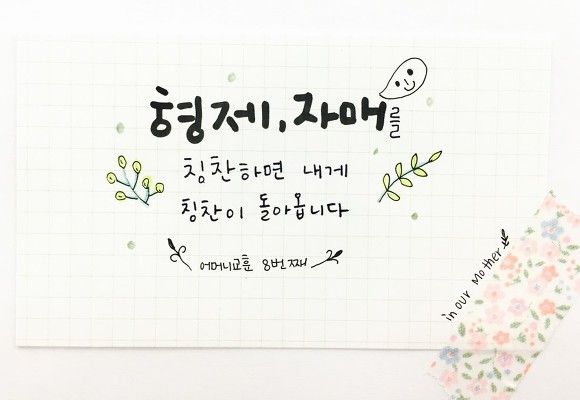 형제, 자매를
칭찬하면 내게
칭찬이 돌아옵니다
어머니교훈 8번째
in our Mother